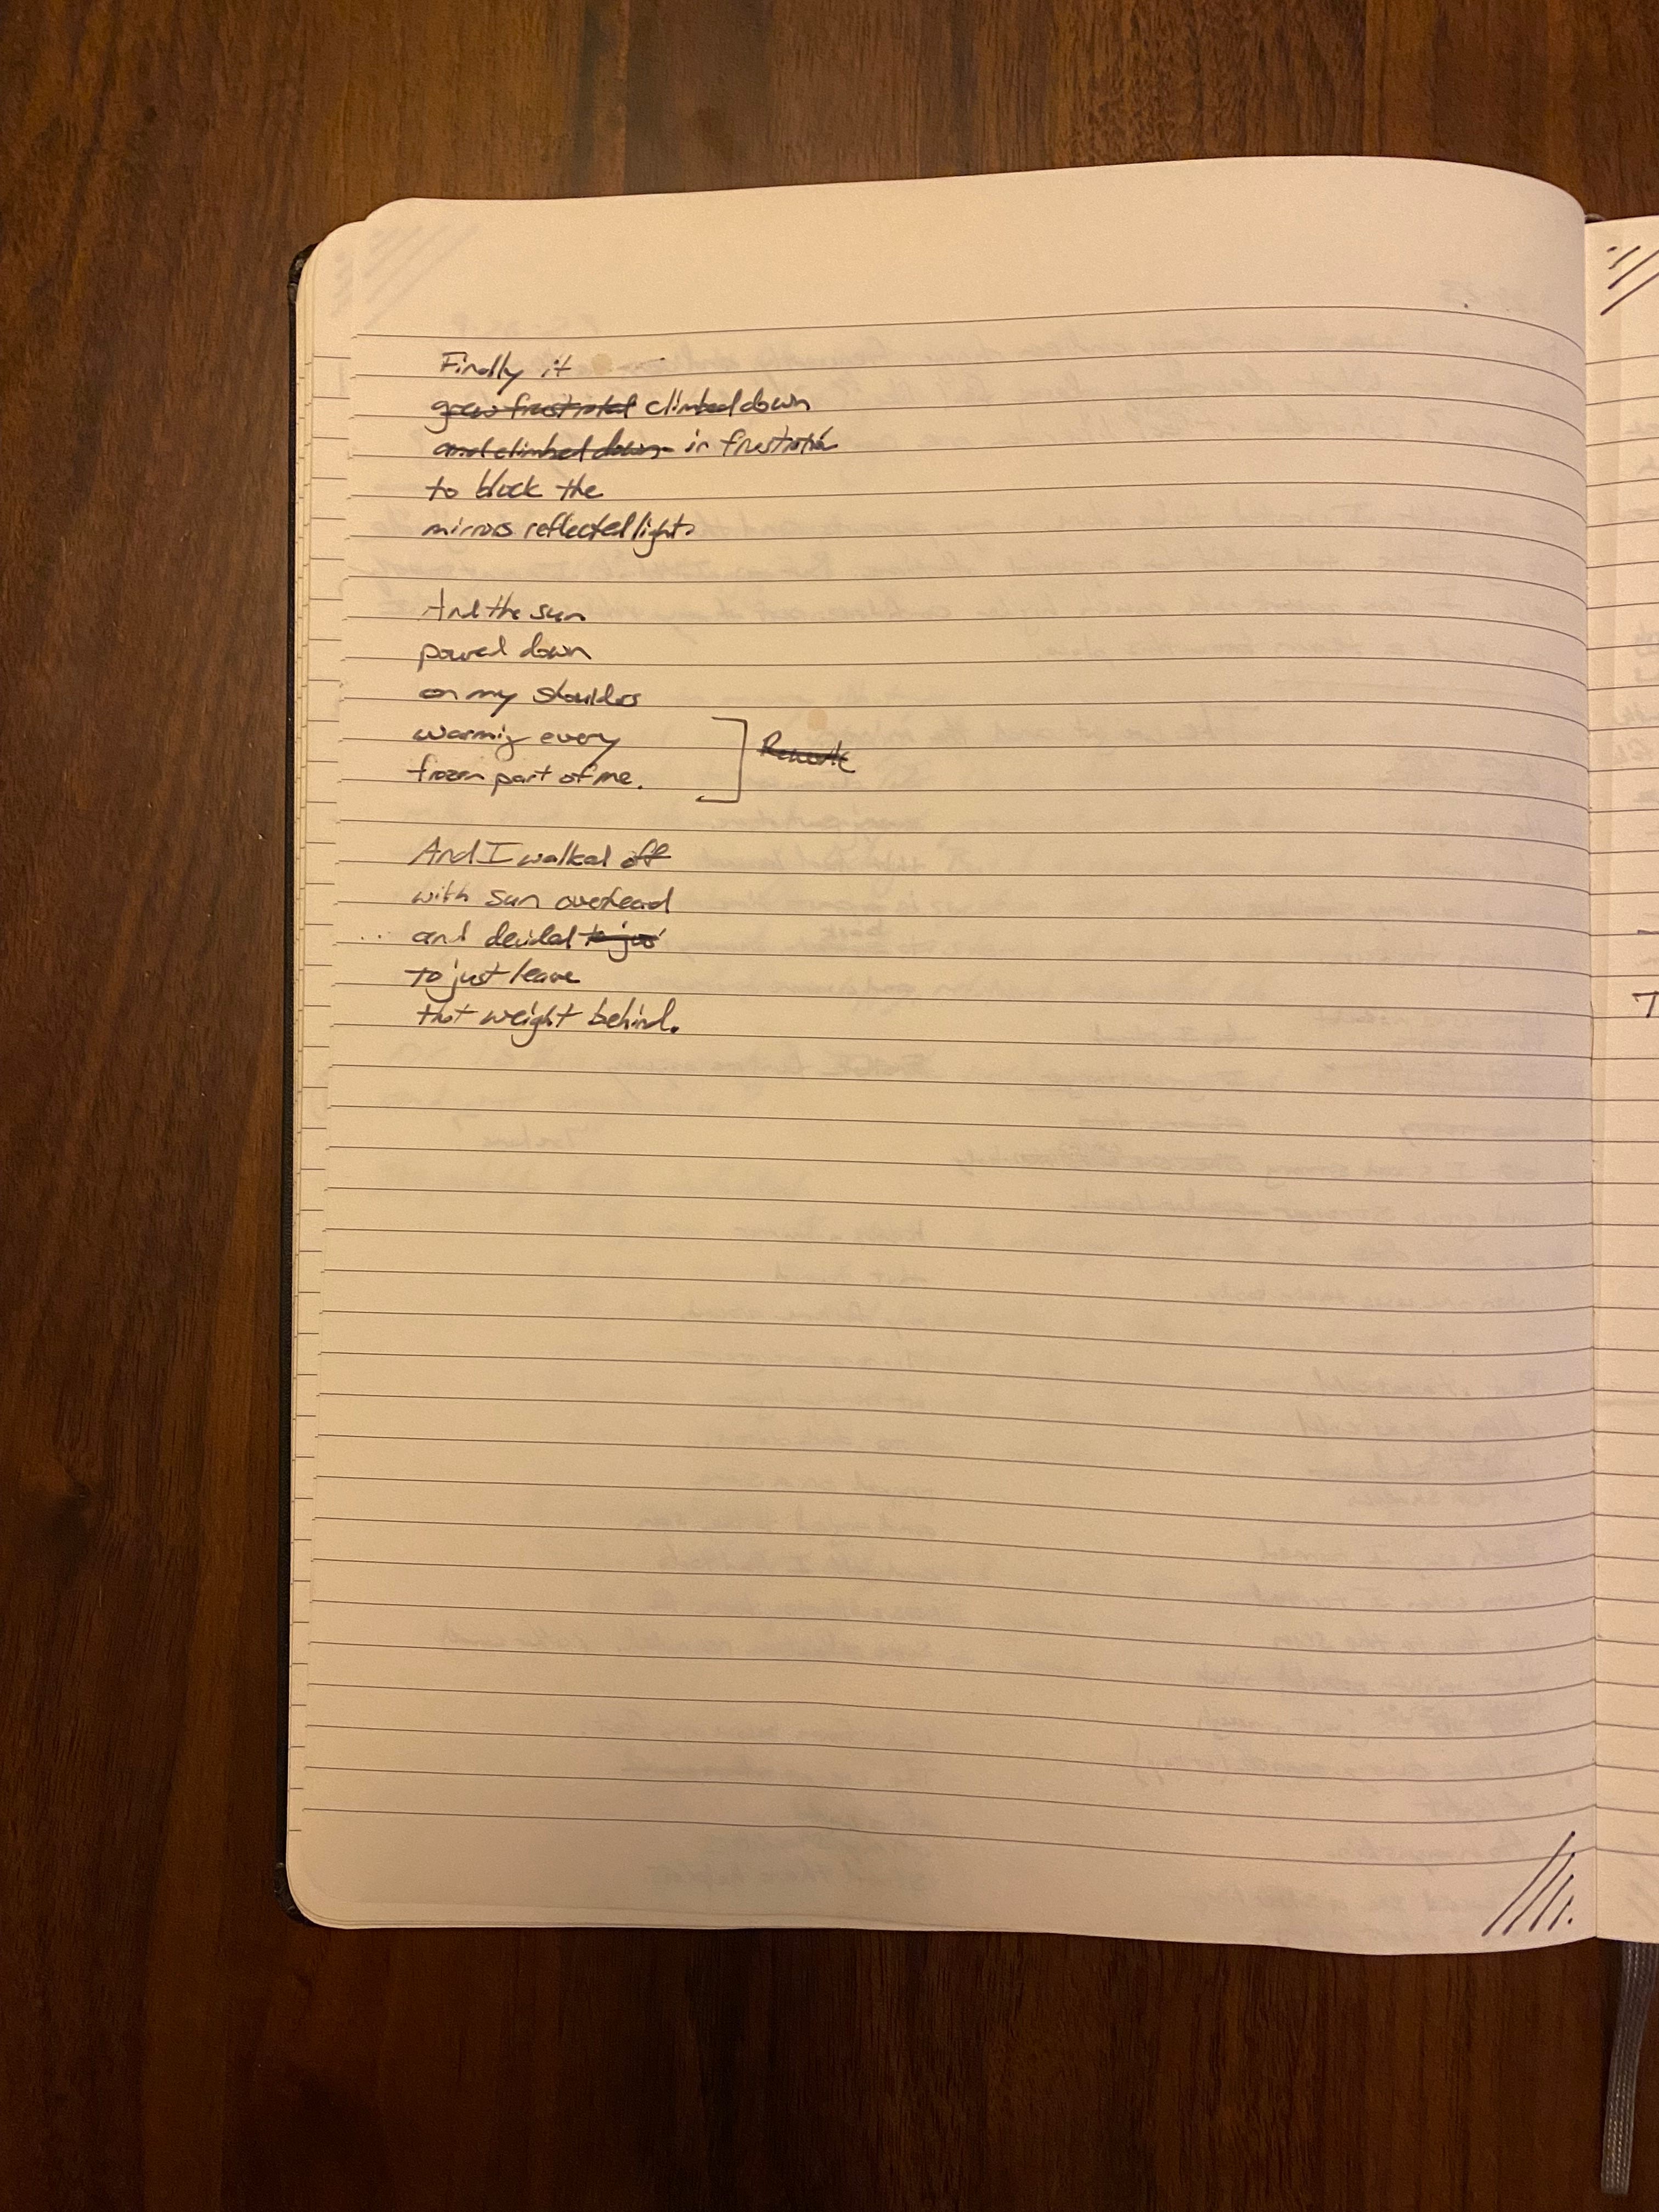 Finally it
grew frustrated climbed down
and climbed down in frustration
to block the
mirrors reflected light.
And the sun
poured down
on my shoulders
warming every
frozen part of me.
Rewrite
And I walked off
with sun overhead
and decided to jus
to just leave
that weight behind.